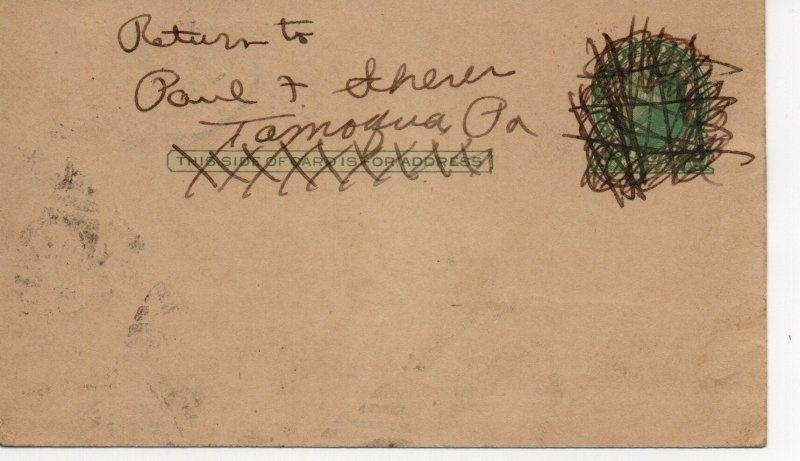 Return to
Paul F Sherer
Tamaqua Pa
THIS SIDE OF CARD IS FOR ADDRESS